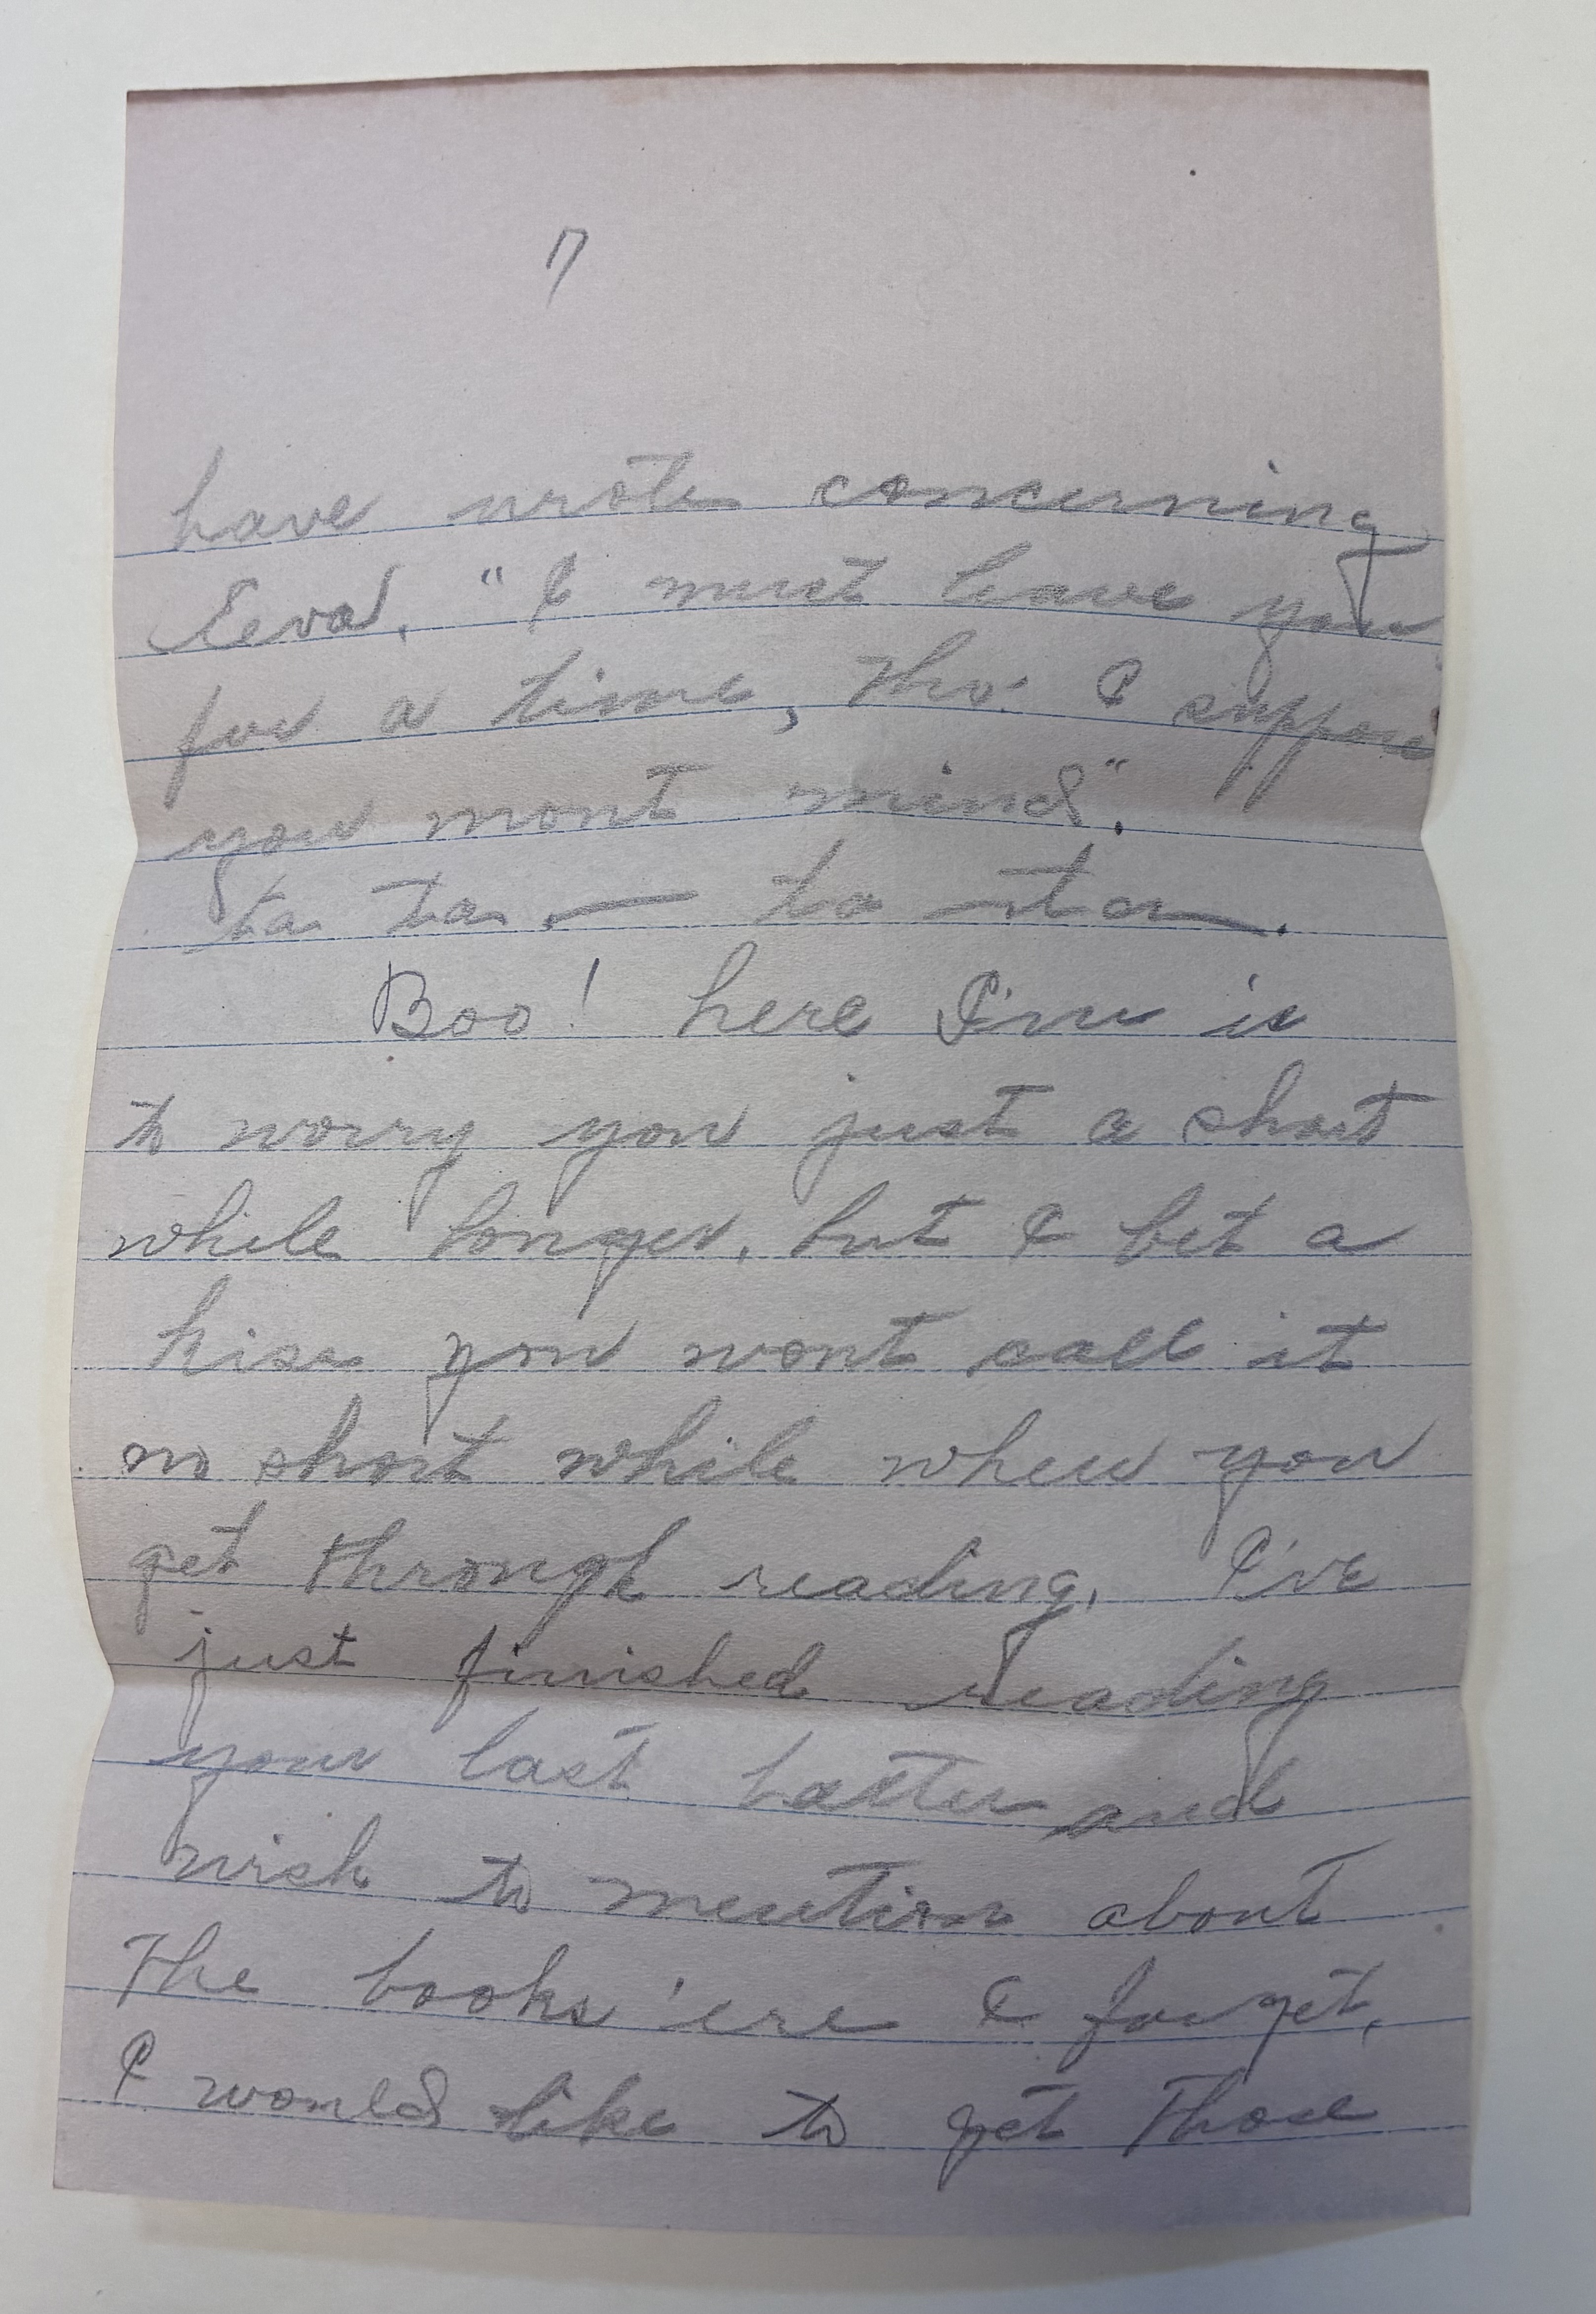 7
have wrote concerning
Eeva. "I must leave you
for a time, tho' I suppose
you wont mind".
ta ta. — ta — ta —.
Boo! here I'm is
to worry you just a short
while longer, but I bet a
kiss you wont call it
no short while when you
get through reading. I've
just finished reading
your last letter and
wish to mention about
the books 'ere I forget,
I would like to get those